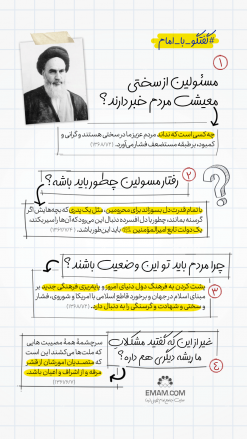 #گفتگو_با_امام
۱
مسئولین از سختی
معیشت مردم خبر دارند؟
چه کسی است که نداند مردم عزیز ما در سختی هستند و گرانی و
کمبود، بر طبقه مستضعف فشار می‌آورد.
۲
رفتار مسولین چطور باید باشه؟
با تمام قدرت دل بسوزاند برای محرومین، مثل یک پدری که بچه‌هایش اگر
گرسنه بمانند، چطور با دل افسرده دنبال این می‌رود که آن‌ها را سیر بکند.
یک دولت تابع امیرالمؤمنین باید این‌طور باشد.
چرا مردم باید تو این وضعیت باشند؟
۳
پشت کردن به فرهنگ دول دنیای امروز و پایه‌ریزی فرهنگی جدید بر
مبنای اسلام در جهان و برخورد قاطع اسلامی با امریکا و شوروی، فشار
و سختی و شهادت و گرسنگی را به دنبال دارد.
غیر از این که گفتید مشکلات
ما ریشه دیگری هم داره؟
۴
سرچشمهٔ همهٔ مصیبت هایی
که ملت‌ها می‌کشند این است
که متصدیان امورشان از قشر
مرفه و از اشراف و اعیان باشد.
EMAM.COM